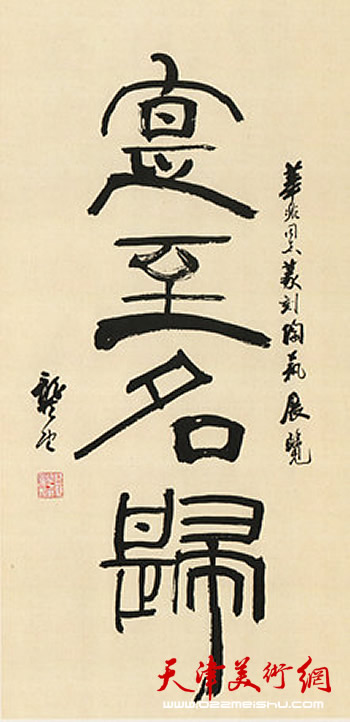 華非同志篆刻陶展覽
寔至名歸
龔望
天津美術網
www.022meishu.com